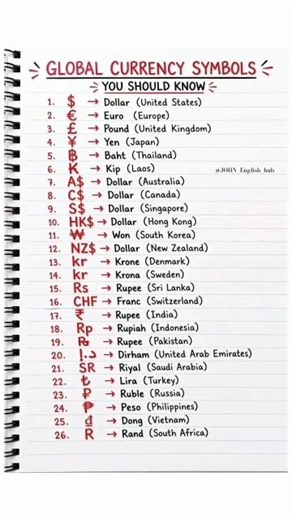 GLOBAL CURRENCY SYMBOLS
YOU SHOULD KNOW
1. $ → Dollar (United States)
2. € → Euro (Europe)
3. £ → Pound (United Kingdom)
4. ¥ → Yen (Japan)
5. ฿ → Baht (Thailand)
6. K → Kip (Laos)
@JOHN English_hub
7. A$ → Dollar (Australia)
8. C$ → Dollar (Canada)
9. S$ → Dollar (Singapore)
10. HK$ → Dollar (Hong Kong)
11. ₩ → Won (South Korea)
12. NZ$ → Dollar (New Zealand)
13. kr → Krone (Denmark)
14. kr → Krona (Sweden)
15. Rs → Rupee (Sri Lanka)
16. CHF → Franc (Switzerland)
17. ₹ → Rupee (India)
18. Rp → Rupiah (Indonesia)
19. ₨ → Rupee (Pakistan)
20. د.إ → Dirham (United Arab Emirates)
21. SR → Riyal (Saudi Arabia)
22. ₺ → Lira (Turkey)
23. ₽ → Ruble (Russia)
24. ₱ → Peso (Philippines)
25. ₫ → Dong (Vietnam)
26. R → Rand (South Africa)